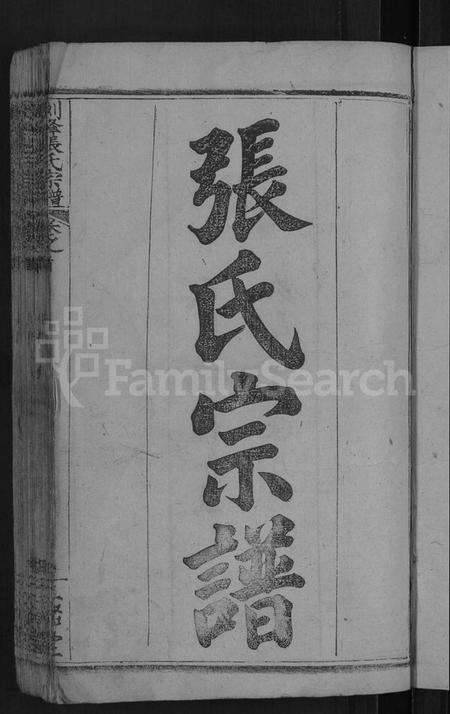 張氏宗譜
張氏宗譜
FamilySearch